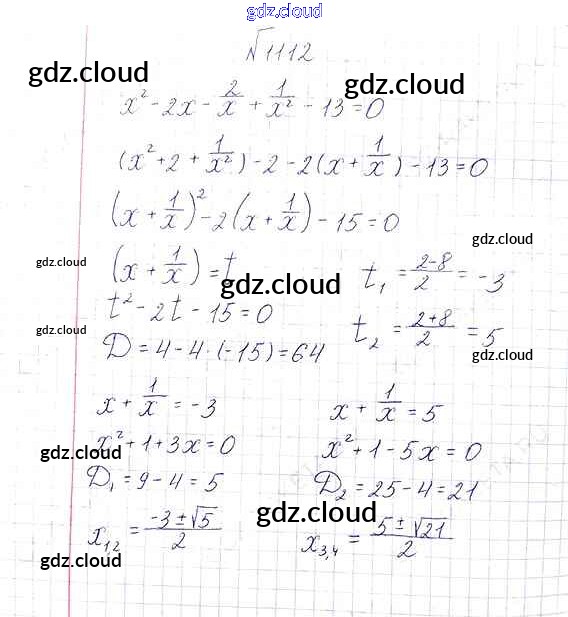 gdz.cloud
№1112
gdz.cloud gdz.cloud
x² - 2x - 2/x + 1/x² - 13 = 0
(x² + 2 + 1/x²) - 2 - 2(x + 1/x) - 13 = 0
(x + 1/x)² - 2(x + 1/x) - 15 = 0
gdz.cloud
gdz.cloud
(x + 1/x) = t
t₁ = (2-8)/2 = -3
gdz.cloud
t² - 2t - 15 = 0
t₂ = (2+8)/2 = 5
gdz.cloud
D = 4 - 4·(-15) = 64
gdz.cloud
x + 1/x = -3
x + 1/x = 5
x² + 1 + 3x = 0
x² + 1 - 5x = 0
gdz.cloud
gdz.cloud
D₁ = 9 - 4 = 5
D₂ = 25 - 4 = 21
gdz.cloud
x₁,₂ = (-3 ± √5)/2
x₃,₄ = (5 ± √21)/2
gdz.cloud
gdz.cloud